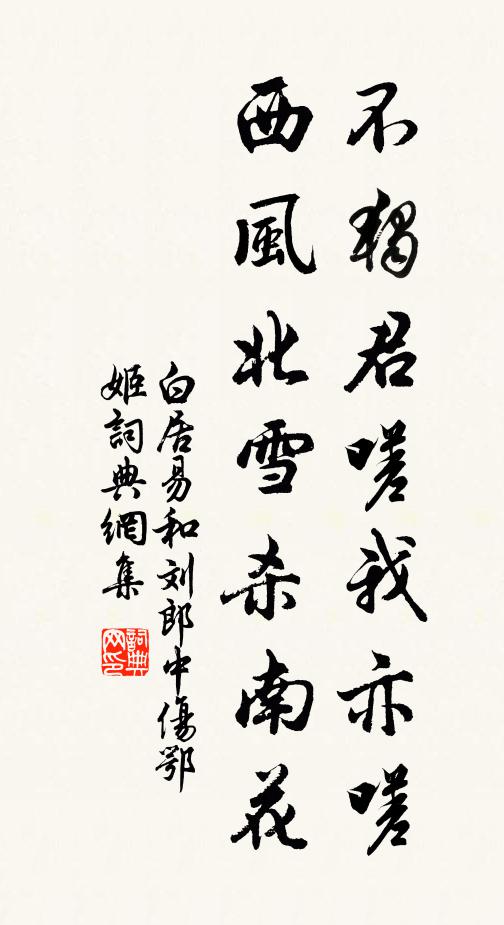 不獨君嗟我亦嗟
西風北雪杀南花
白居易和刘郎中傷鄂
姬詞典網集
詞典网印